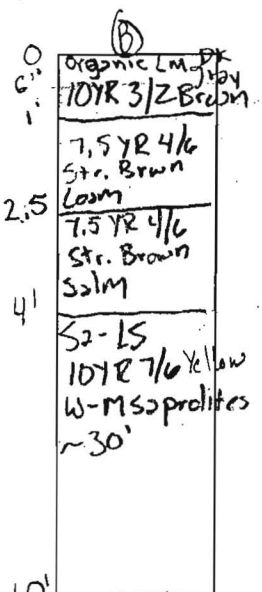 B
0
Organic Lm Dk
gray
6"
10YR 3/2 Brown
1'
7.5 YR 4/6
Str. Brown
Loam
2.5
7.5 YR 4/6
Str. Brown
SaLm
4'
Sa-LS
10YR 7/6 Yellow
W-M Saprolites
~30'
10'